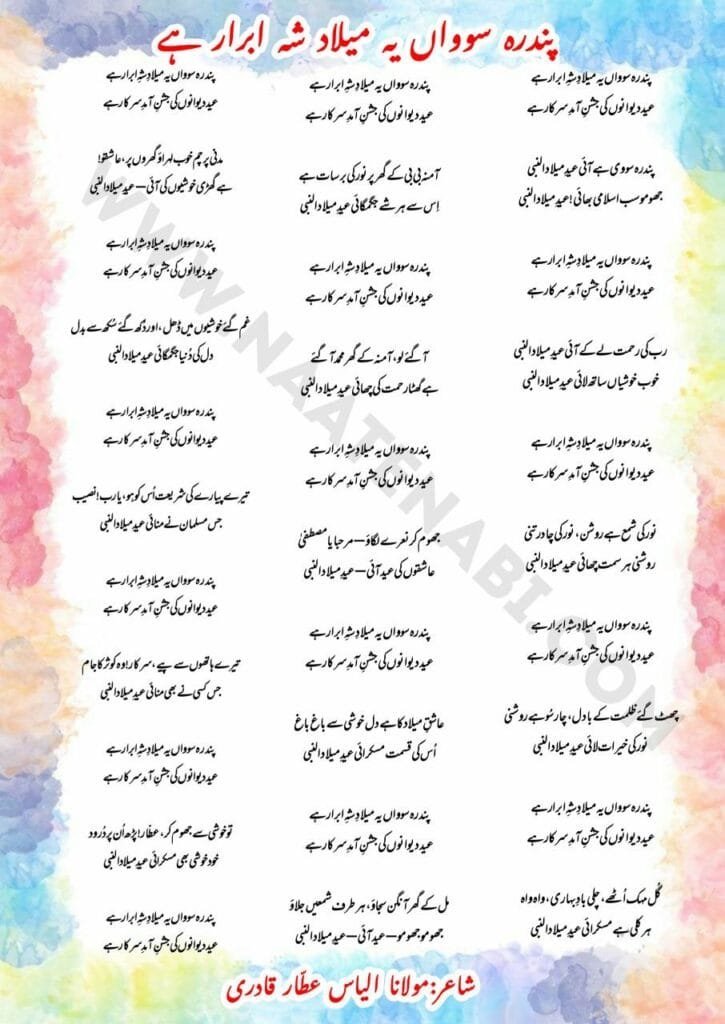 پندرہ سوواں یہ میلاد شہ ابرار ہے
پندرہ سوواں یہ میلادِ شہِ ابرار ہے
عید دیوانوں کی جشنِ آمدِ سرکار ہے
پندرہ سووی ہے آئی عیدِ میلادالنبی
جھومو سب اسلامی بھائی! عیدِ میلادالنبی
پندرہ سوواں یہ میلادِ شہِ ابرار ہے
عید دیوانوں کی جشنِ آمدِ سرکار ہے
رب کی رحمت لے کے آئی عیدِ میلادالنبی
خوب خوشیاں ساتھ لائی عیدِ میلادالنبی
پندرہ سوواں یہ میلادِ شہِ ابرار ہے
عید دیوانوں کی جشنِ آمدِ سرکار ہے
نور کی شمع ہے روشن، نور کی چادر تنی
روشنی ہر سمت چھائی عیدِ میلادالنبی
پندرہ سوواں یہ میلادِ شہِ ابرار ہے
عید دیوانوں کی جشنِ آمدِ سرکار ہے
چھٹ گئے ظلمت کے بادل، چار سُو ہے روشنی
نور کی خیرات لائی عیدِ میلادالنبی
پندرہ سوواں یہ میلادِ شہِ ابرار ہے
عید دیوانوں کی جشنِ آمدِ سرکار ہے
گُل مہک اُٹھے، چلی بادِ بہاری، واہ واہ
ہر کلی ہے مسکرائی عیدِ میلادالنبی
پندرہ سوواں یہ میلادِ شہِ ابرار ہے
عید دیوانوں کی جشنِ آمدِ سرکار ہے
آمنہ بی بی کے گھر پر نور کی برسات ہے
اِس سے ہر شے جگمگائی عیدِ میلادالنبی
پندرہ سوواں یہ میلادِ شہِ ابرار ہے
عید دیوانوں کی جشنِ آمدِ سرکار ہے
آگئے لو، آمنہ کے گھر محمد آگئے
ہے گھٹا رحمت کی چھائی عیدِ میلادالنبی
پندرہ سوواں یہ میلادِ شہِ ابرار ہے
عید دیوانوں کی جشنِ آمدِ سرکار ہے
جھوم کر نعرے لگاؤ – مرحبا یا مصطفیٰ
عاشقوں کی عید آئی – عیدِ میلادالنبی
پندرہ سوواں یہ میلادِ شہِ ابرار ہے
عید دیوانوں کی جشنِ آمدِ سرکار ہے
عاشقِ میلاد کا ہے دل خوشی سے باغ باغ
اُس کی قسمت مسکرائی عیدِ میلادالنبی
پندرہ سوواں یہ میلادِ شہِ ابرار ہے
عید دیوانوں کی جشنِ آمدِ سرکار ہے
مل کے گھر آنگن سجاؤ، ہر طرف شمعیں جلاؤ
جھومو جھومو – عید آئی – عیدِ میلادالنبی
پندرہ سوواں یہ میلادِ شہِ ابرار ہے
عید دیوانوں کی جشنِ آمدِ سرکار ہے
مدنی پرچم خوب لہراؤ گھروں پر، عاشقو!
ہے گھڑی خوشیوں کی آئی – عیدِ میلادالنبی
پندرہ سوواں یہ میلادِ شہِ ابرار ہے
عید دیوانوں کی جشنِ آمدِ سرکار ہے
غم گئے خوشیوں میں ڈھل، اور دُکھ گئے سُکھ سے بدل
دل کی دُنیا جگمگائی عیدِ میلادالنبی
پندرہ سوواں یہ میلادِ شہِ ابرار ہے
عید دیوانوں کی جشنِ آمدِ سرکار ہے
تیرے پیارے کی شریعت اُس کو ہو، یارب! نصیب
جس مسلمان نے منائی عیدِ میلادالنبی
پندرہ سوواں یہ میلادِ شہِ ابرار ہے
عید دیوانوں کی جشنِ آمدِ سرکار ہے
تیرے ہاتھوں سے پیے، سرکار! وہ کوثر کا جام
جس کسی نے بھی منائی عیدِ میلادالنبی
پندرہ سوواں یہ میلادِ شہِ ابرار ہے
عید دیوانوں کی جشنِ آمدِ سرکار ہے
تو خوشی سے جھوم کر، عطار! پڑھ اُن پر دُرود
خود خوشی بھی مسکرائی عیدِ میلادالنبی
پندرہ سوواں یہ میلادِ شہِ ابرار ہے
عید دیوانوں کی جشنِ آمدِ سرکار ہے
شاعر: مولانا الیاس عطّار قادری
WWW.NAATENABI.COM